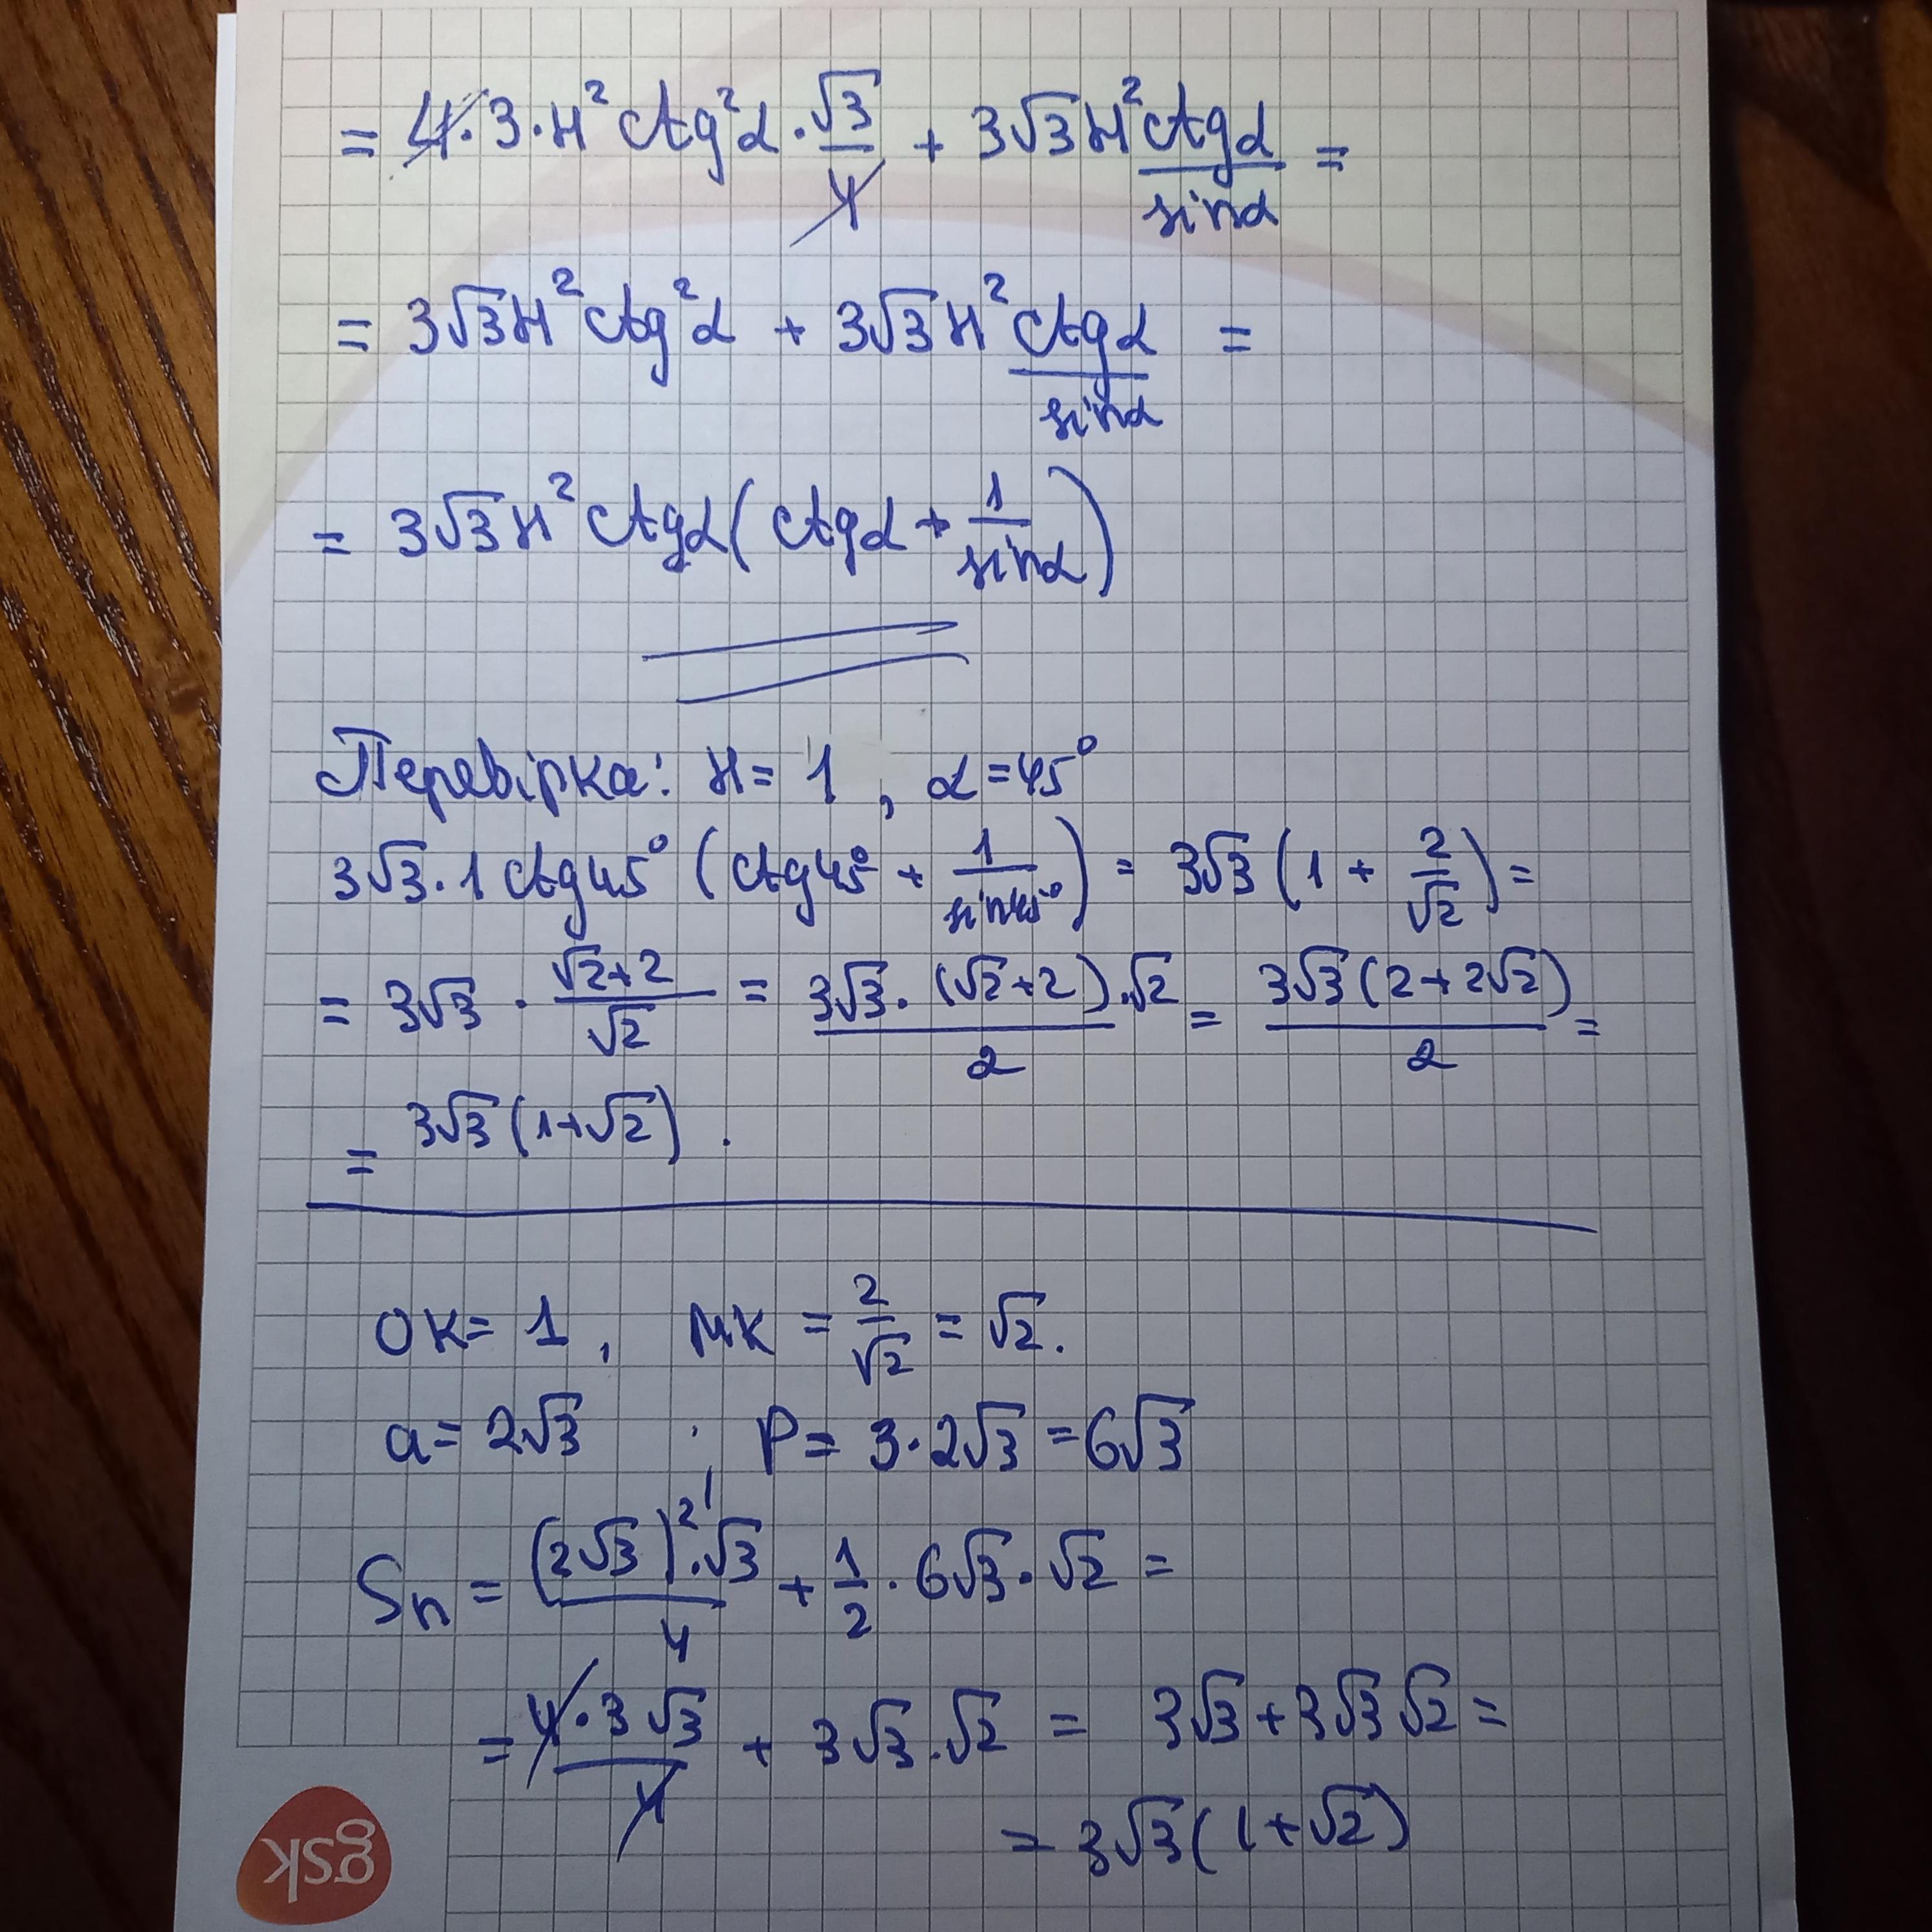 = 4·3·H² ctg²α · √3/4 + 3√3H² ctgα/sinα =
= 3√3H² ctg²α + 3√3H² ctgα/sinα =
= 3√3H² ctgα(ctgα + 1/sinα)
Перевірка: H = 1, α = 45°
3√3·1 ctg45° (ctg45° + 1/sin45°) = 3√3(1 + 2/√2) =
= 3√3 · (√2+2)/√2 = 3√3·(√2+2)·√2/2 = 3√3(2+2√2)/2 =
= 3√3(1+√2).
OK = 1, MK = 2/√2 = √2.
a = 2√3, P = 3·2√3 = 6√3
Sп = (2√3)²·√3/4 + 1/2 · 6√3·√2 =
= 4·3√3/4 + 3√3·√2 = 3√3+3√3√2 =
= 3√3(1+√2)
gsk